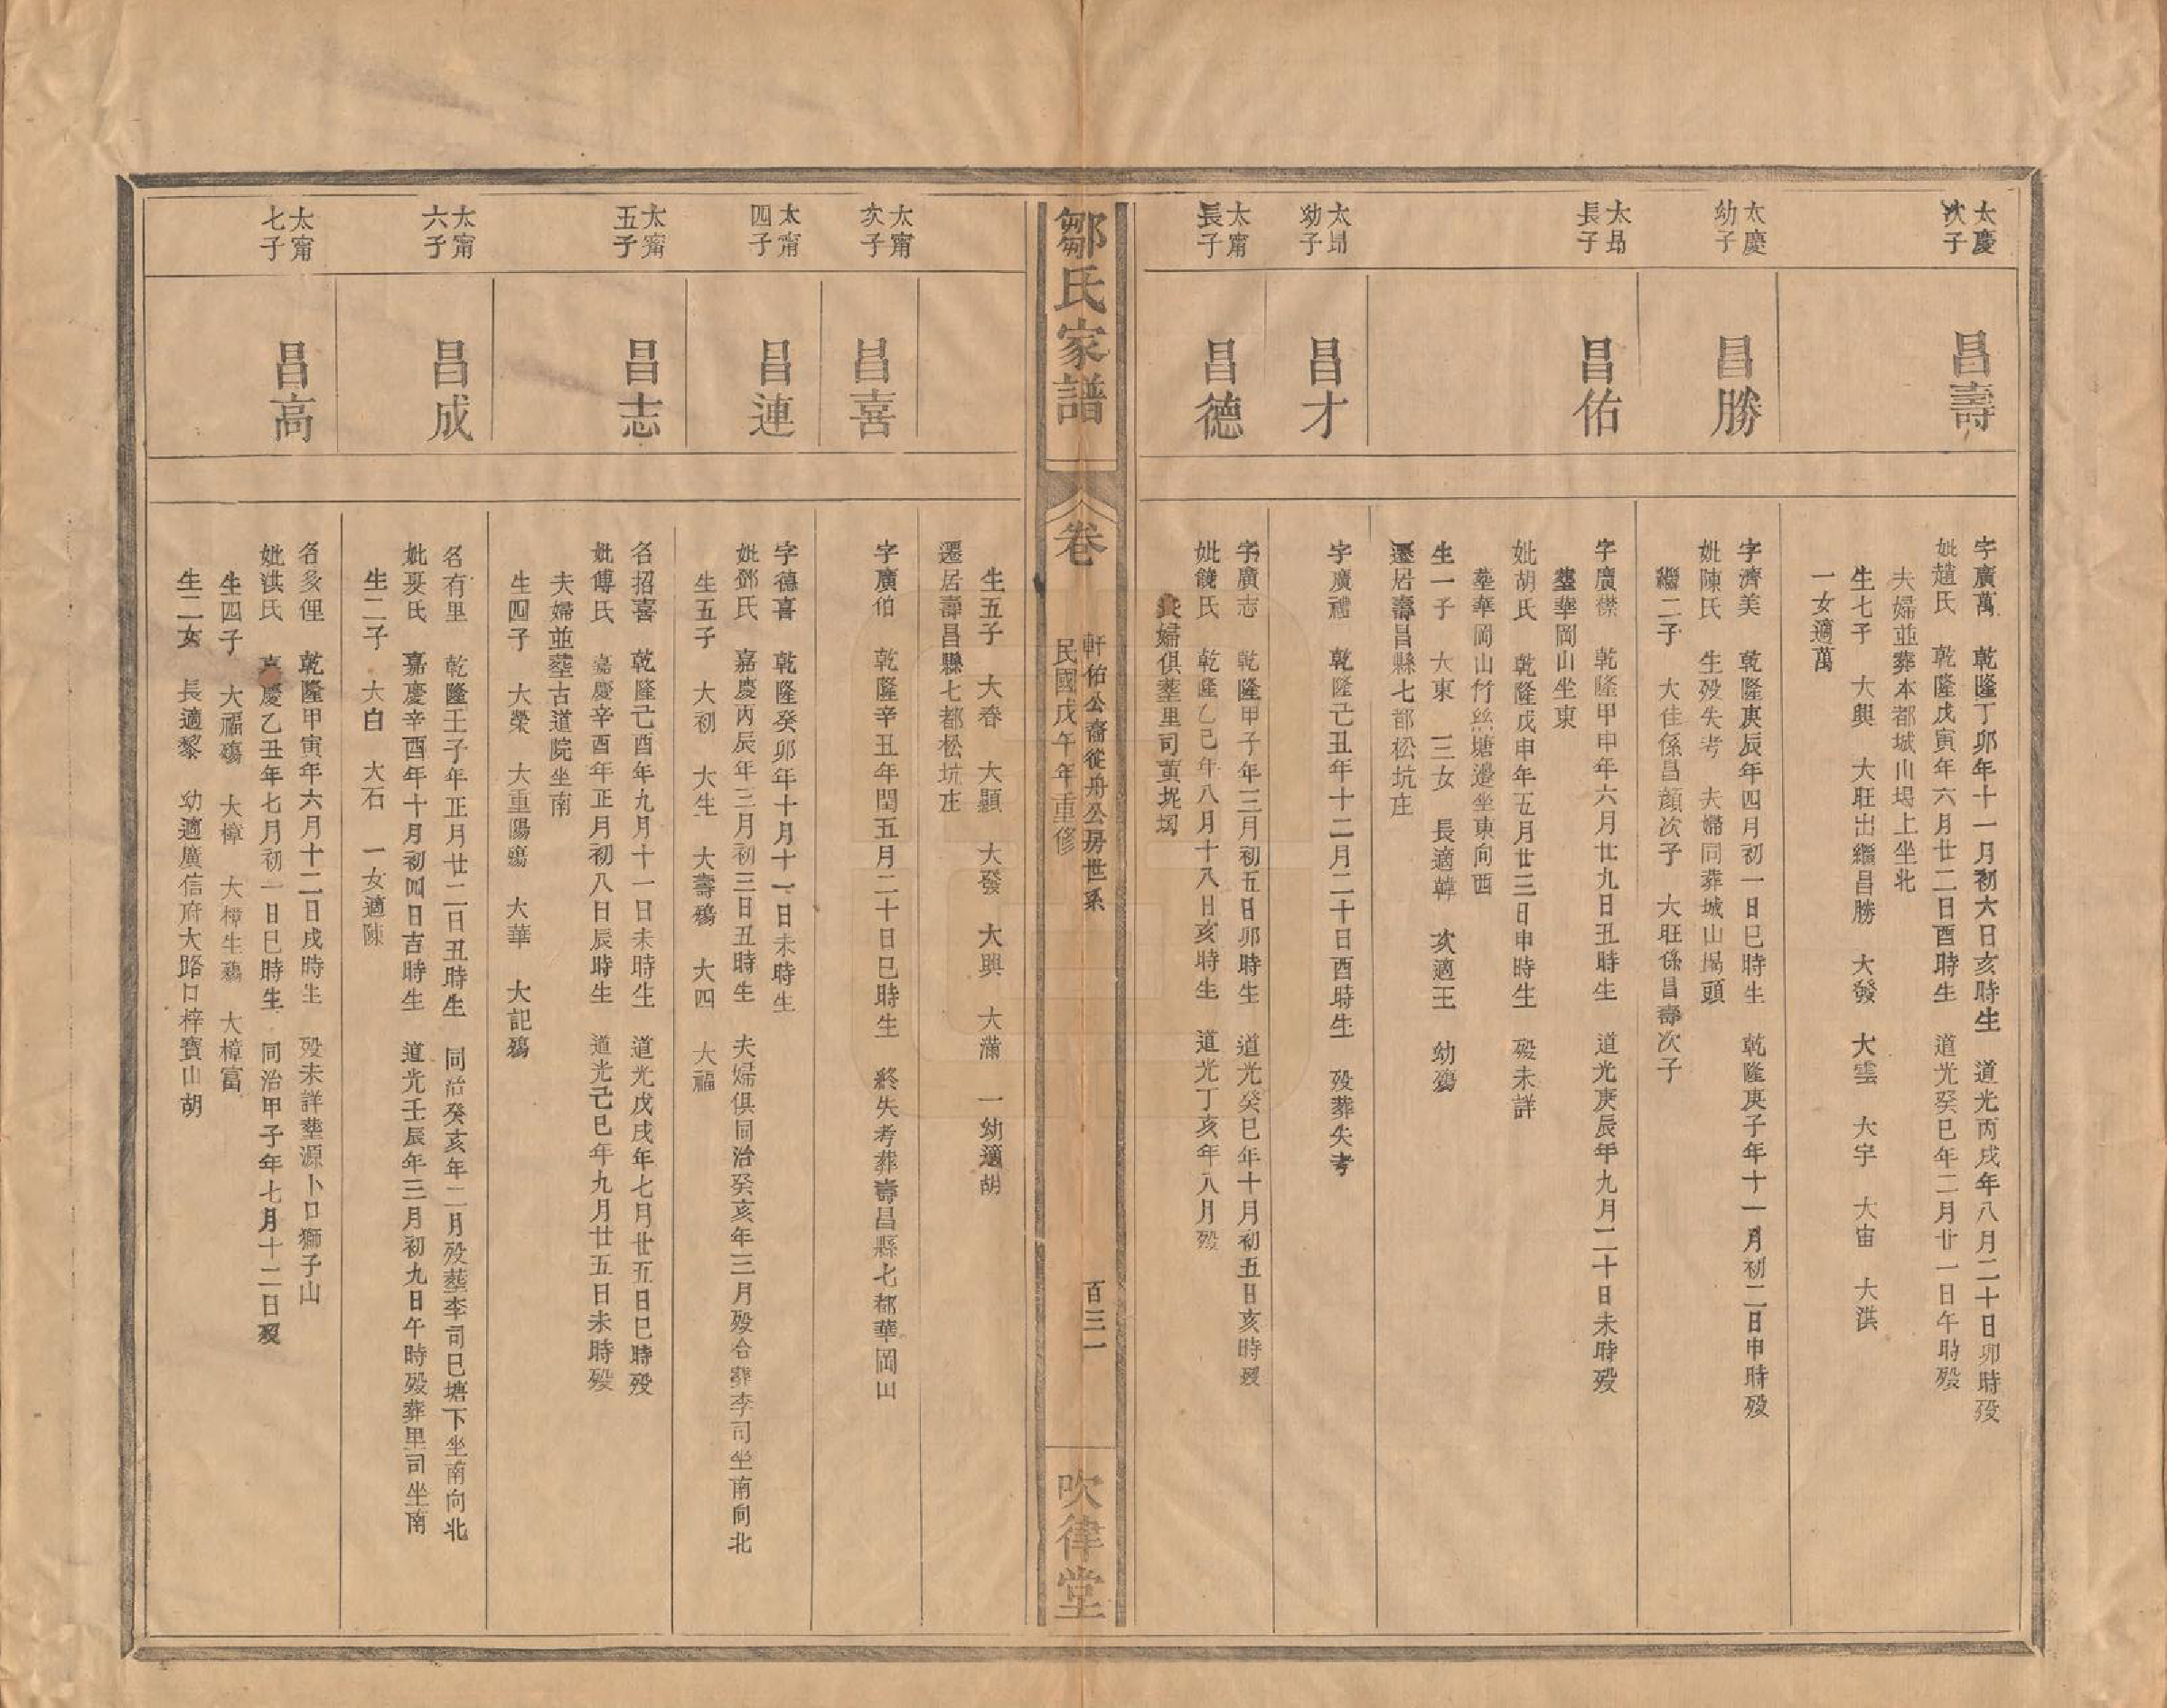 太慶
次子
昌壽
字廣萬 乾隆丁卯年十一月初六日亥時生 道光丙戌年八月二十日卯時歿
妣趙氏 乾隆戊寅年六月廿二日酉時生 道光癸巳年二月廿一日午時歿
夫婦並葬本都城山塌上坐北
生七子 大興 大旺出繼昌勝 大發 大雲 大宇 大宙 大洪
一女適萬
太慶
幼子
昌勝
字濟美 乾隆庚辰年四月初一日巳時生 乾隆庚子年十一月初二日申時歿
妣陳氏 生歿失考 夫婦同葬城山塌頭
繼二子 大佳係昌顏次子 大旺係昌壽次子
太昂
長子
昌佑
字廣襟 乾隆甲申年六月廿九日丑時生 道光庚辰年九月二十日未時歿
塟華岡山坐東
妣胡氏 乾隆戊申年五月廿三日申時生 歿未詳
塟華岡山竹絲塘邊坐東向西
生一子 大東 三女 長適韓 次適王 幼殤
遷居壽昌縣七都松坑庄
太昂
幼子
昌才
字廣禮 乾隆己丑年十二月二十日酉時生 歿葬失考
太甯
長子
昌德
字廣志 乾隆甲子年三月初五日卯時生 道光癸巳年十月初五日亥時歿
妣饒氏 乾隆乙己年八月十八日亥時生 道光丁亥年八月歿
夫婦俱塟里司黃坭塢
鄒氏家譜
卷
軒佑公裔從舟公房世系
民國戊午年重修
百三一
吹律堂
生五子 大春 大顯 大發 大興 大滿 一幼適胡
遷居壽昌縣七都松坑庄
太甯
次子
昌喜
字廣伯 乾隆辛丑年閏五月二十日巳時生 終失考葬壽昌縣七都華岡山
太甯
四子
昌連
字德喜 乾隆癸卯年十月十一日未時生
妣鄧氏 嘉慶丙辰年三月初三日丑時生 夫婦俱同治癸亥年三月歿合葬李司坐南向北
生五子 大初 大生 大壽殤 大四 大福
太甯
五子
昌志
名招喜 乾隆己酉年九月十一日未時生 道光戊戌年七月廿五日巳時歿
妣傅氏 嘉慶辛酉年正月初八日辰時生 道光己巳年九月廿五日未時歿
夫婦並塟古道院坐南
生四子 大榮 大重陽殤 大華 大記殤
太甯
六子
昌成
名有里 乾隆壬子年正月廿二日丑時生 同治癸亥年二月歿塟李司巳塘下坐南向北
妣㚆氏 嘉慶辛酉年十月初四日吉時生 道光壬辰年三月初九日午時歿葬里司坐南
生二子 大白 大石 一女適陳
太甯
七子
昌高
名亥俚 乾隆甲寅年六月十二日戌時生 歿未詳塟源卜口獅子山
妣洪氏 嘉慶乙丑年七月初一日巳時生 同治甲子年七月十二日歿
生四子 大福殤 大樟 大樟生殤 大樟富
生二女 長適黎 幼適廣信府大路口梓寶山胡